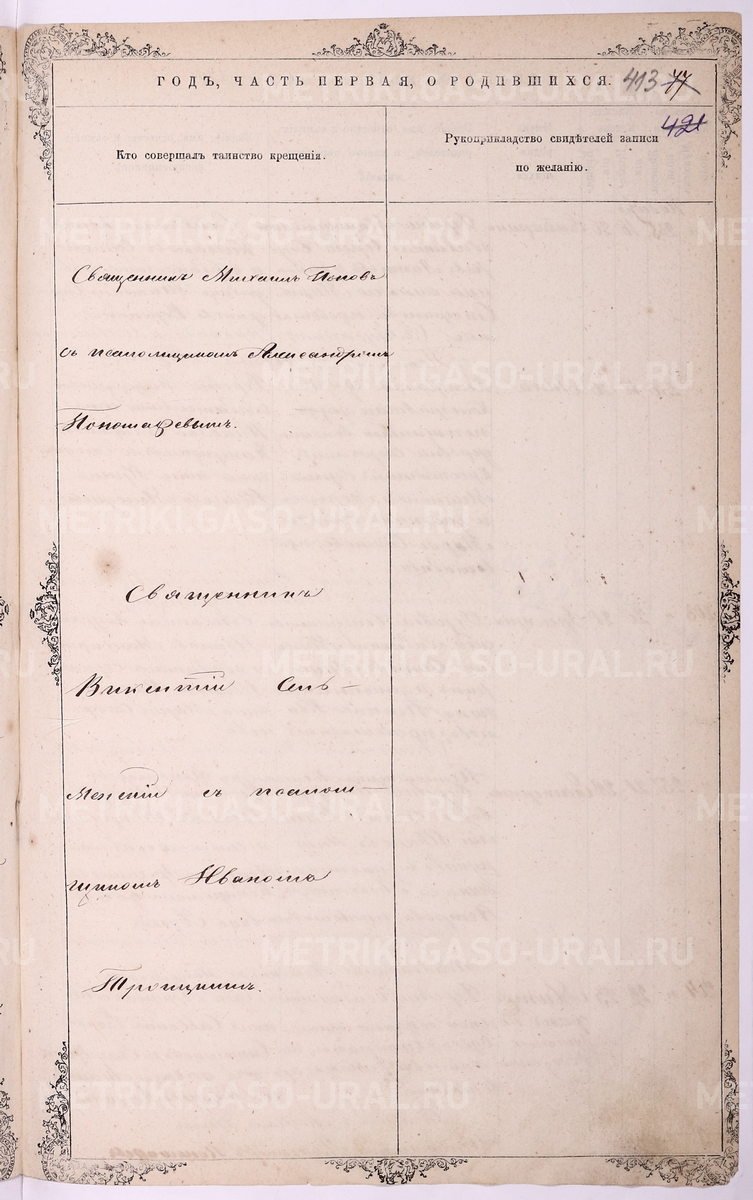 ГОДЪ, ЧАСТЬ ПЕРВАЯ, О РОДИВШИХСЯ. 413 77
421
Кто совершалъ таинство крещенія.
Рукоприкладство свидѣтелей записи
по желанію.
Священникъ Михаилъ Поповъ
съ псаломщикомъ Александромъ
Священникъ
Викентій Сель-
менскій съ псалом-
щикомъ Иваномъ
Троицкимъ.
METRIKI.GASO-URAL.RU